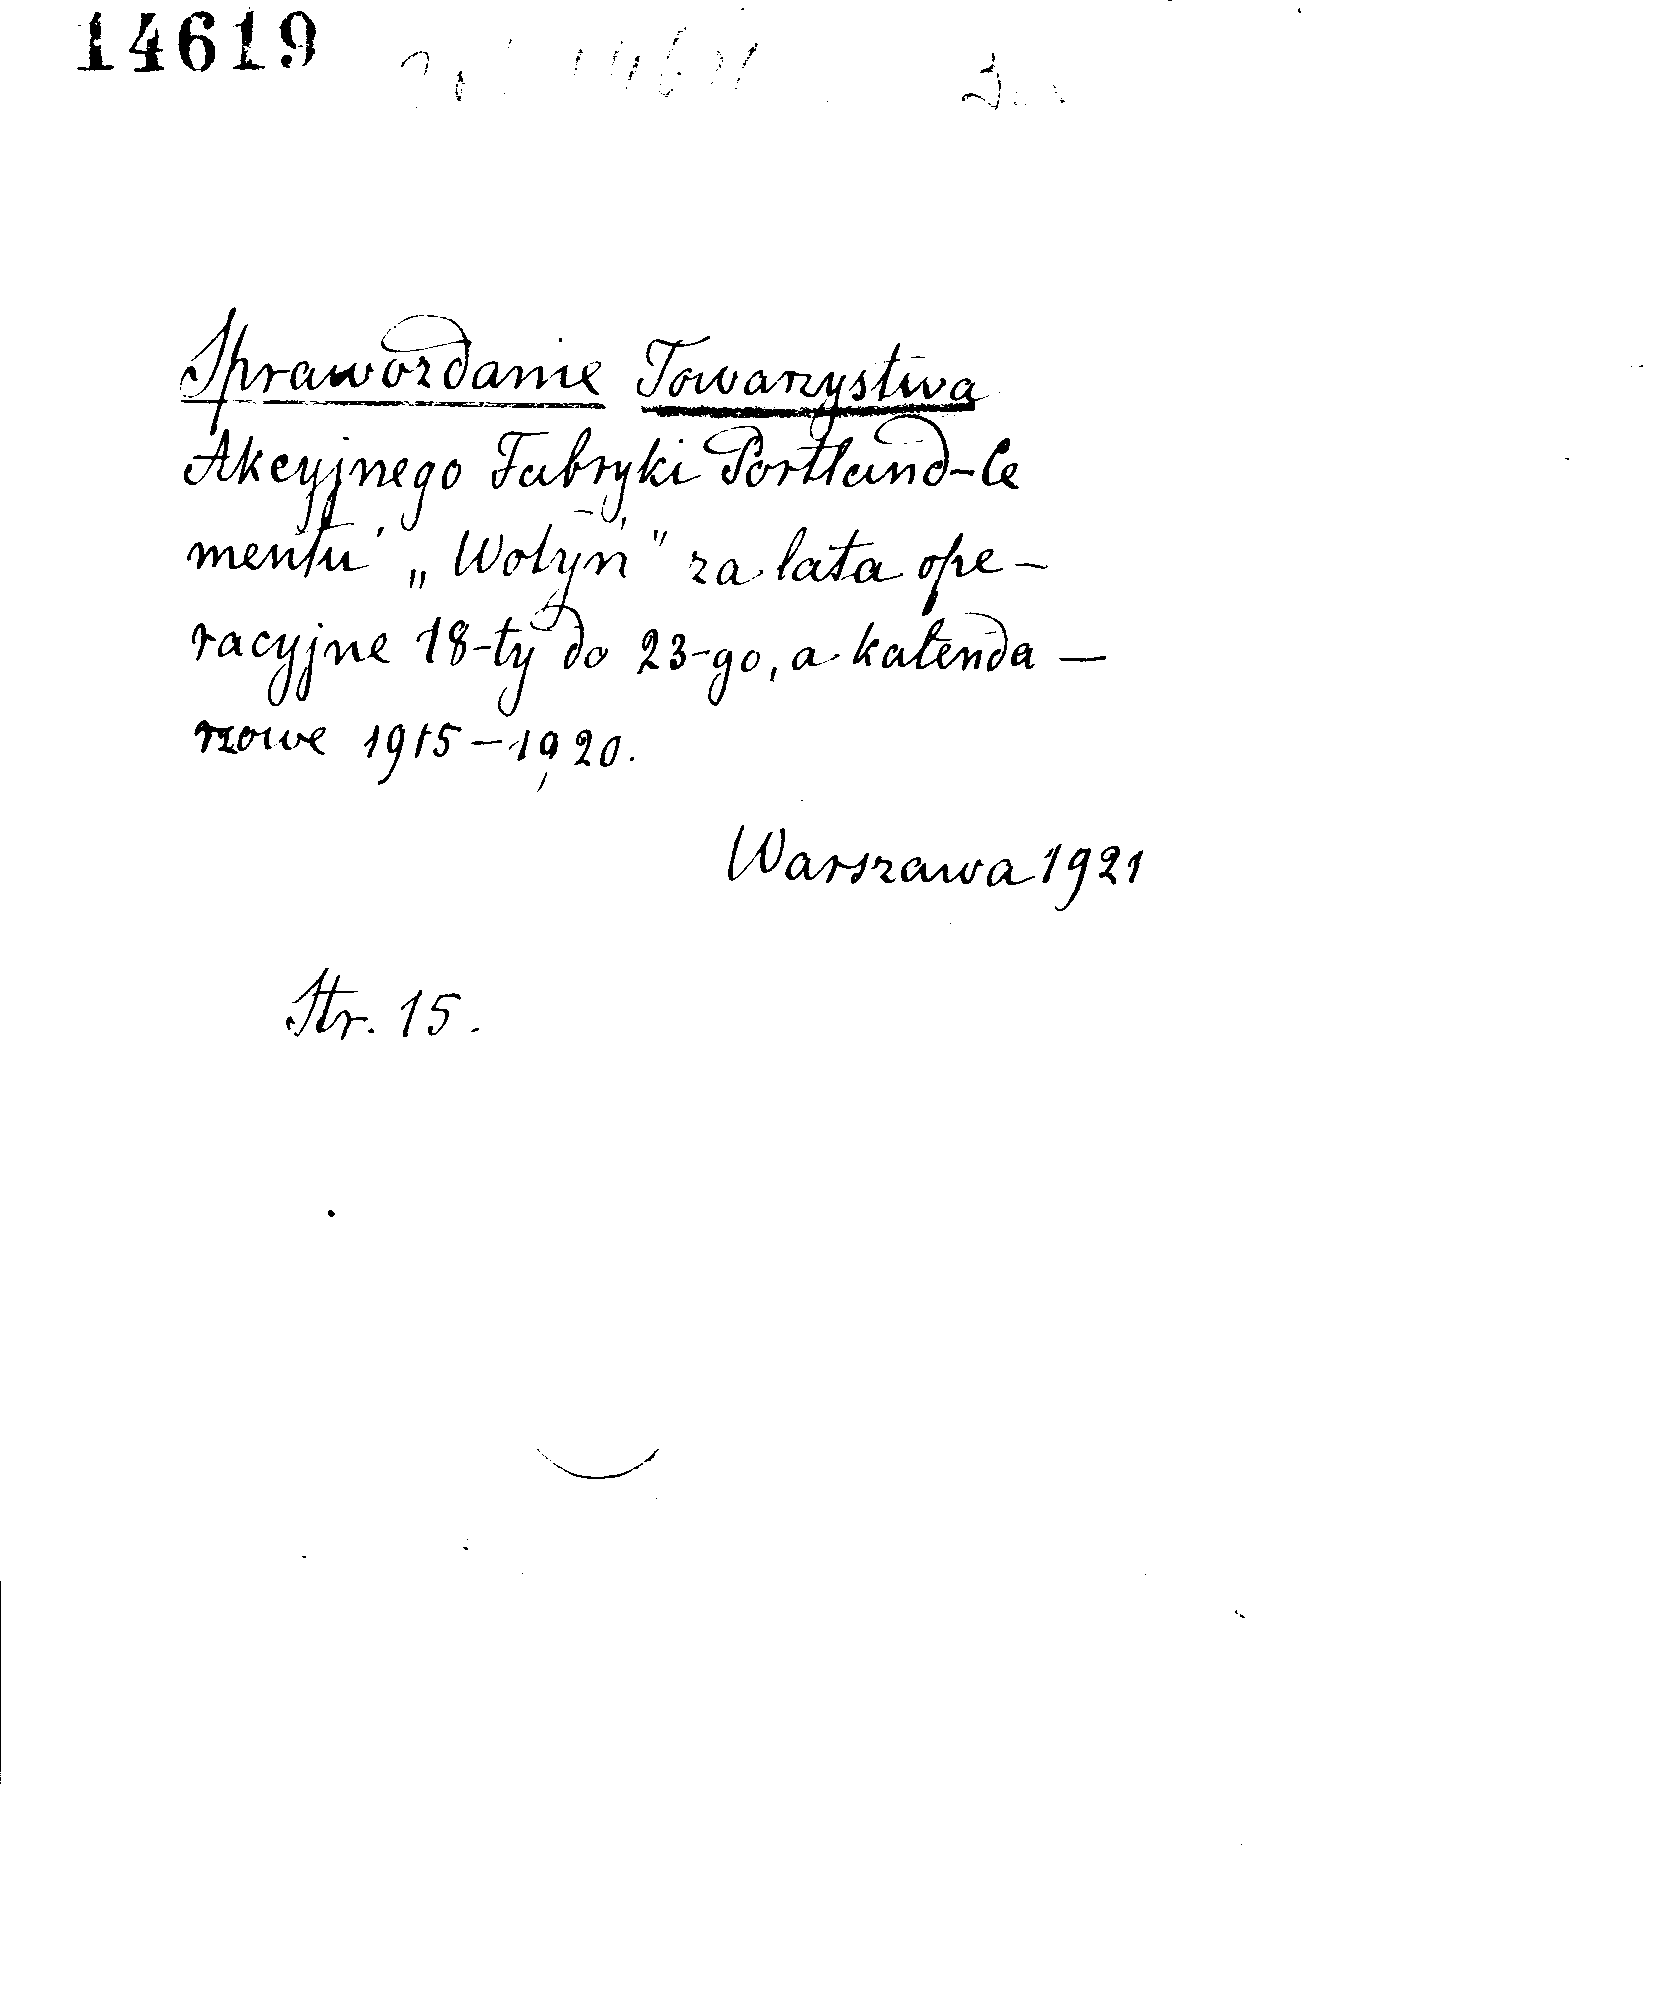 14619
Sprawozdanie Towarzystwa
Akcyjnego Fabryki Portland-Ce
mentu „Wołyń" za lata ope-
racyjne 18-ty do 23-go, a kalenda-
rzowe 1915-1920.
Warszawa 1921
Str. 15.